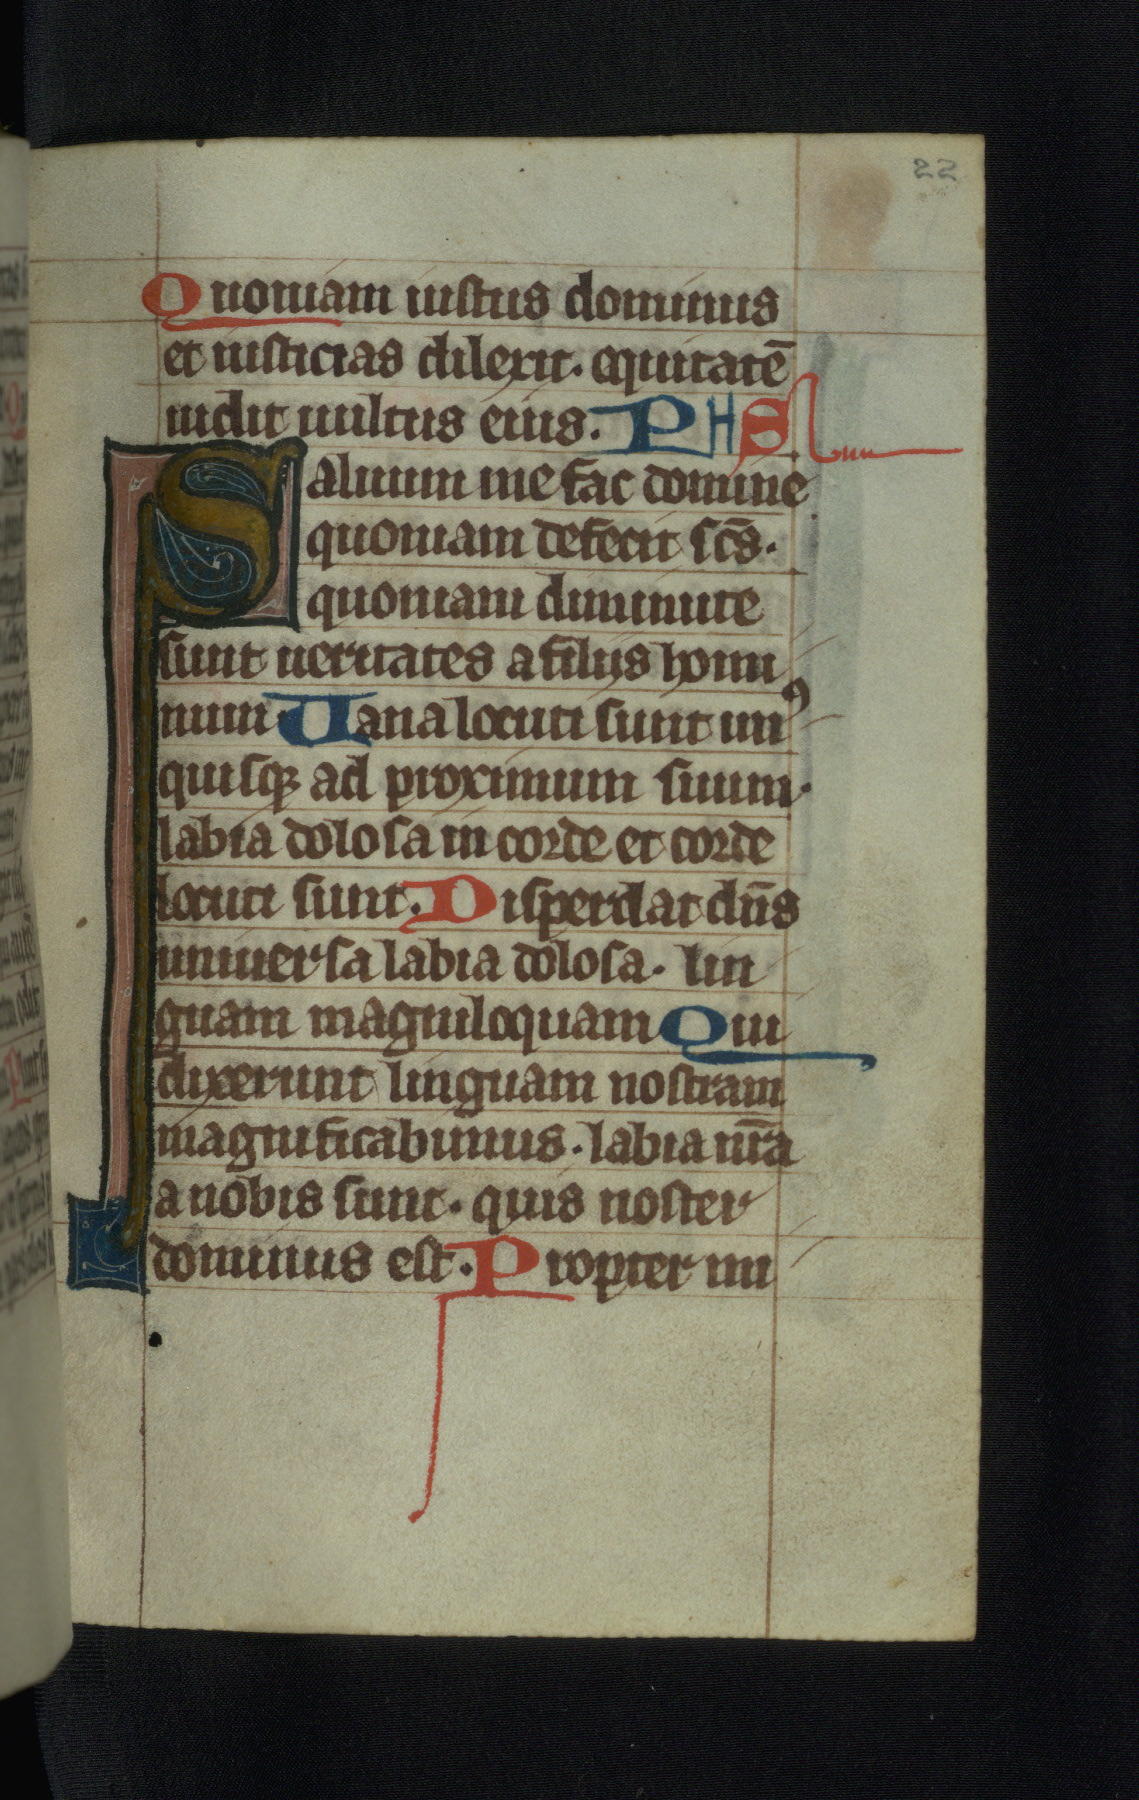 22
Quoniam iustus dominus
et iusticias dilexit. equitatē
uidit uultus eius. PHS
Saluum me fac domine
quoniam defecit sc̄s.
quoniam diminute
sunt ueritates a filijs homi
num Uana locuti sunt unꝰ
quisqꝫ ad proximum suum.
labia dolosa in corde et corde
locuti sunt. Disperdat dn̄s
uniuersa labia dolosa. lin
guam magniloquam Qui
dixerunt linguam nostram
magnificabimus. labia nr̄a
a nobis sunt. quis noster
dominus est. Propter mi